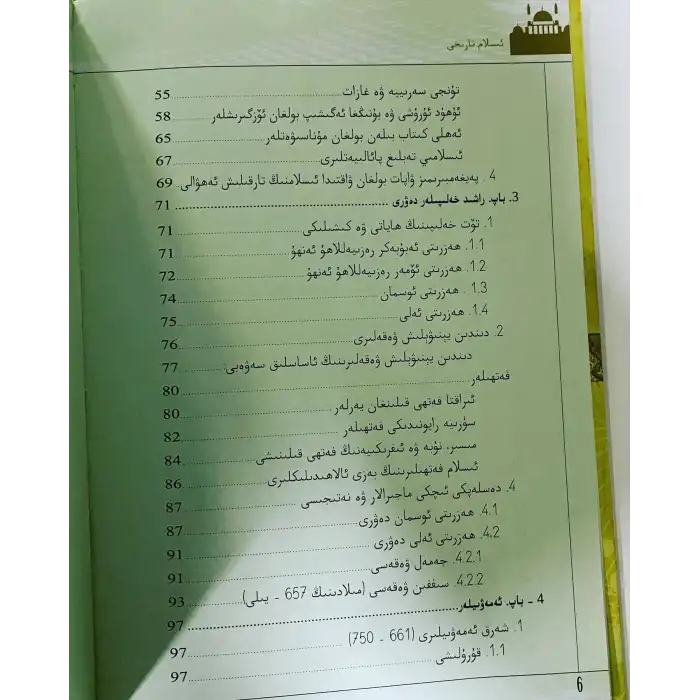 ئىسلام تارىخى
تۇنجى سەرىييە ۋە غازات 55
ئوھۇد ئۇرۇشى ۋە بۇنىڭغا ئەگىشىپ بولغان ئۆزگىرىشلەر 58
ئەھلى كىتاب بىلەن بولغان مۇناسىۋەتلەر 65
ئىسلامىي تەبلىغ پائالىيەتلىرى 67
4 . پەيغەمبىرىمىز ۋاپات بولغان ۋاقتىدا ئىسلامنىڭ تارقىلىش ئەھۋالى 69
3. باپ. راشىد خەلىپىلەر دەۋرى 71
1. تۆت خەلىپىنىڭ ھاياتى ۋە كىشىلىكى 71
1.1. ھەزرىتى ئەبۇبەكر رەزىيەللاھۇ ئەنھۇ 71
1.2. ھەزرىتى ئۆمەر رەزىيەللاھۇ ئەنھۇ 72
1.3 . ھەزرىتى ئوسمان 74
1.4. ھەزرىتى ئەلى 75
2. دىندىن يېنىۋېلىش ۋەقەلىرى 76
دىندىن يېنىۋېلىش ۋەقەلىرىنىڭ ئاساسلىق سەۋەبى: 77
فەتھىلەر 80
ئىراقتا فەتھى قىلىنغان يەرلەر 80
سۈرىيە رايونىدىكى فەتھىلەر 82
مىسىر، نۇبە ۋە ئىفرىكىيەنىڭ فەتھى قىلىنىشى 84
ئىسلام فەتھىلىرىنىڭ بەزى ئالاھىدىلىكلىرى 86
4. دەسلەپكى ئىچكى ماجىرالار ۋە نەتىجىسى 87
4.1. ھەزرىتى ئوسمان دەۋرى 87
4.2. ھەزرىتى ئەلى دەۋرى 91
4.2.1. جەمەل ۋەقەسى 91
4.2.2. سىففىن ۋەقەسى (مىلادىنىڭ 657 - يىلى) 93
4 - باپ. ئەمەۋىيلەر 97
1. شەرق ئەمەۋىيلىرى (661 - 750) 97
1.1. قۇرۇلىشى 97
6